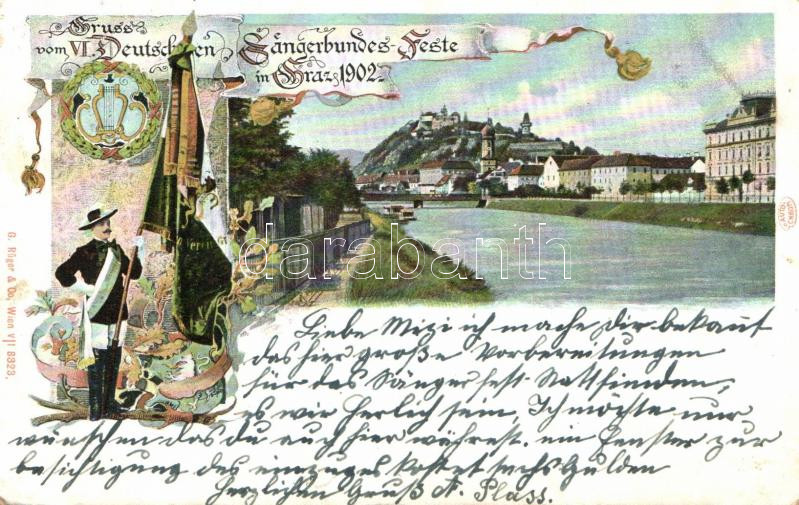 Gruss
vom VI. Deutschen Sängerbundes-Feste
in Graz 1902.
Verein
darabanth
G. Rüger & Co., Wien VII 8323.
Liebe Mizi ich mache dir bekant
das hier große Vorbereitungen
für das Sängerfest Stattfinden,
es wir herlich sein, Ich möchte nur
wünschen das du auch hier währest. ein Fenster zur
besichtigung des einzuges kostet sechs Gulden
Herzlichen Gruß N. Plass.